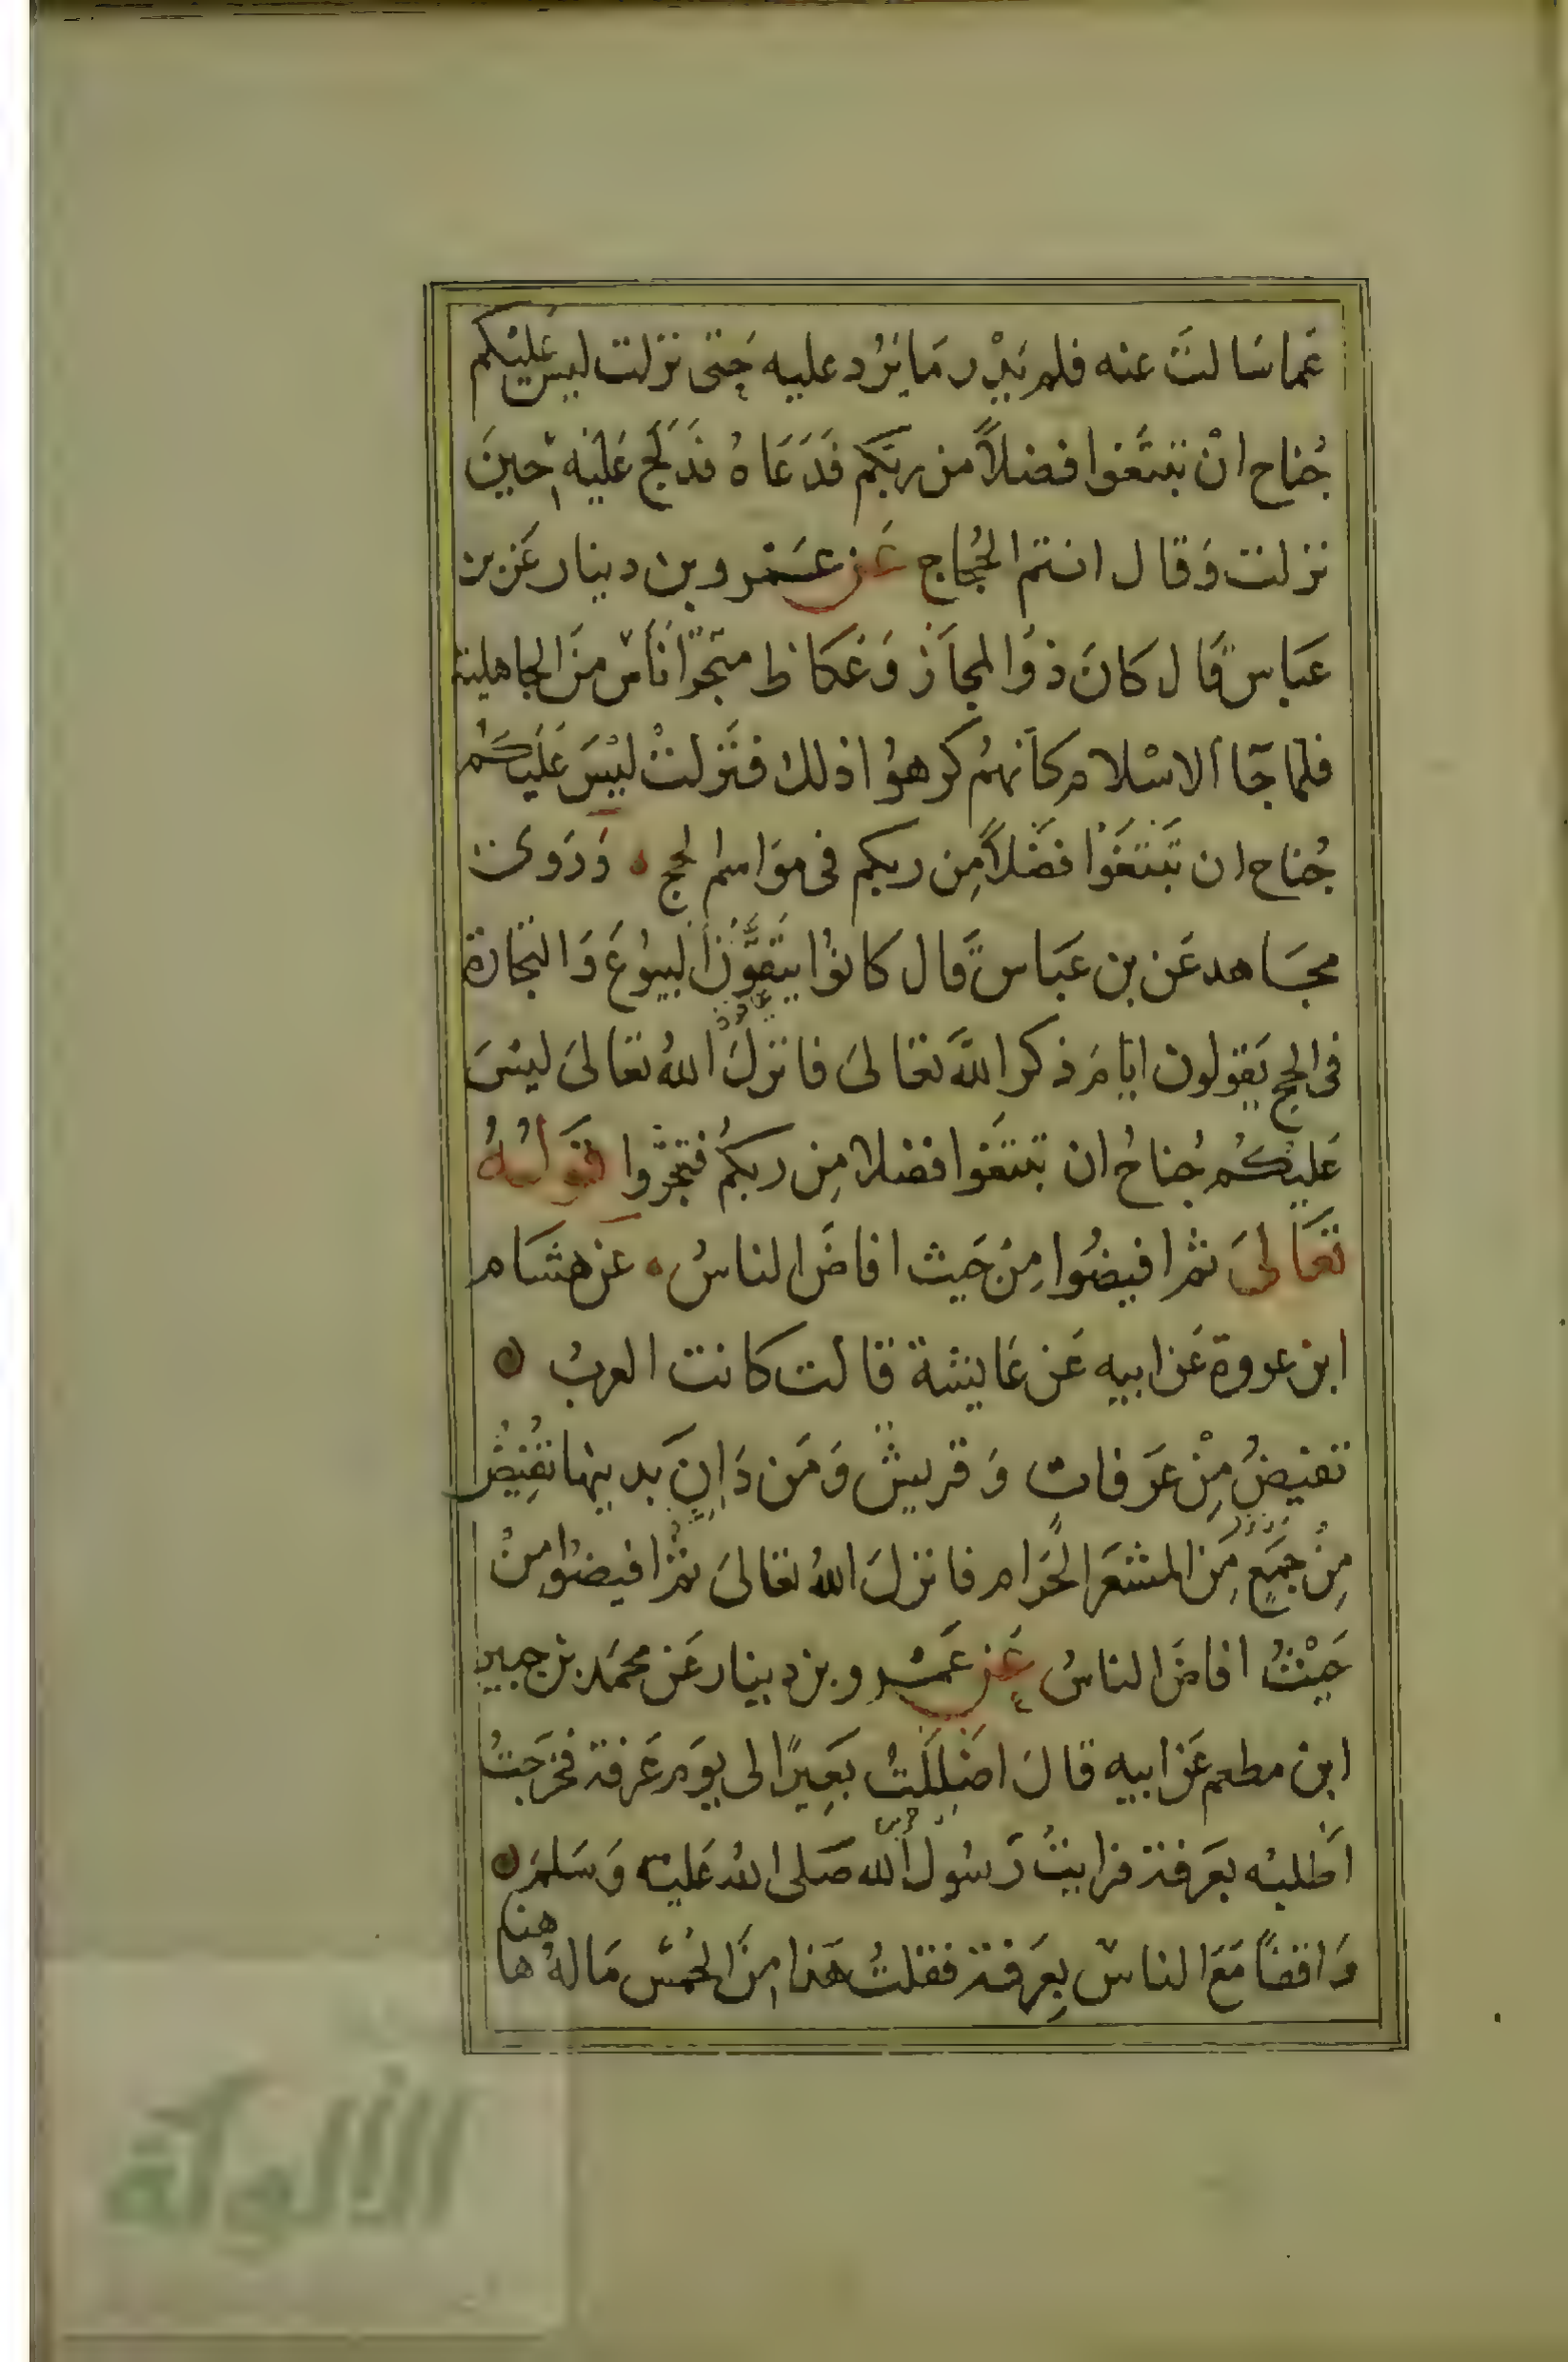 عَما سَالتَ عنه فلم يَدْر مَا يَرُد عليه حَتى نزلت ليس عَليْكم
جُناح انْ تبتَغوا فضلاً من ربكم فَدَعَاهُ فَدَلَج عَليْه حِينَ
نزلت وَقال انتم الحُجاج عَن عَمْرو بن دينار عَن بن
عَباسٍ قَال كانَ ذوُا المجَاز وَعُكاظ متجَرا نَاسٍ منَ الجاهلية
فلما جَا الاسْلام كأنهمُ كرهوُا ذلك فنَزلتْ ليْسَ عَليكُم
جُناح ان تَبْتَغَوْا فَضْلاً مِن ربكم فى موَاسم الحج ه وَرَوى
مجَاهد عَن بن عَباسٍ قَال كانوُا يتَقوُنَ البيوُعَ وَالتجَارة
فى الحج يَقولون ايامَ ذكر اللهَ تعَالىَ فانزلَ اللهُ تعالىَ ليْسَ
عَليْكُم جُناحُ ان تبْتَغوا فضلا مِن ربكمُ فتجَرُوا قوَلهُ
تعَالىَ ثم افيضُوا مِنْ حَيث افاضَ الناسُ ه عَن هشَام
ابن عروة عَن ابيه عَن عَايشة قالت كانت العربُ ه
تفيضُ مِنْ عَرَفاتٍ وَقريشٌ وَمَن دَانَ بدينها تفُيِضُ
مِنْ جَمَعٍ مِنَ المشعَر الحَرَام فانزلَ اللهُ تعالىَ ثمَ افيضُوا مِنْ
حَيْثُ افاضَ الناسُ عَن عَمْرو بن دينار عَن محمَد بن جبير
ابن مطعم عَن ابيه قالَ اضْلَلتُ بَعِيرًا لى يوَم عَرَفة فخرَجتُ
اطلبُه بعَرَفة فرايتُ رَسُول الله صَلى اللهُ عَليْه وَسَلمَ ه
وَاقفاً مَعَ الناسِ بِعَرَفة فقلتُ هَذا مِنَ الحُمْسِ مَا لهُ هاهنا
الألوكة